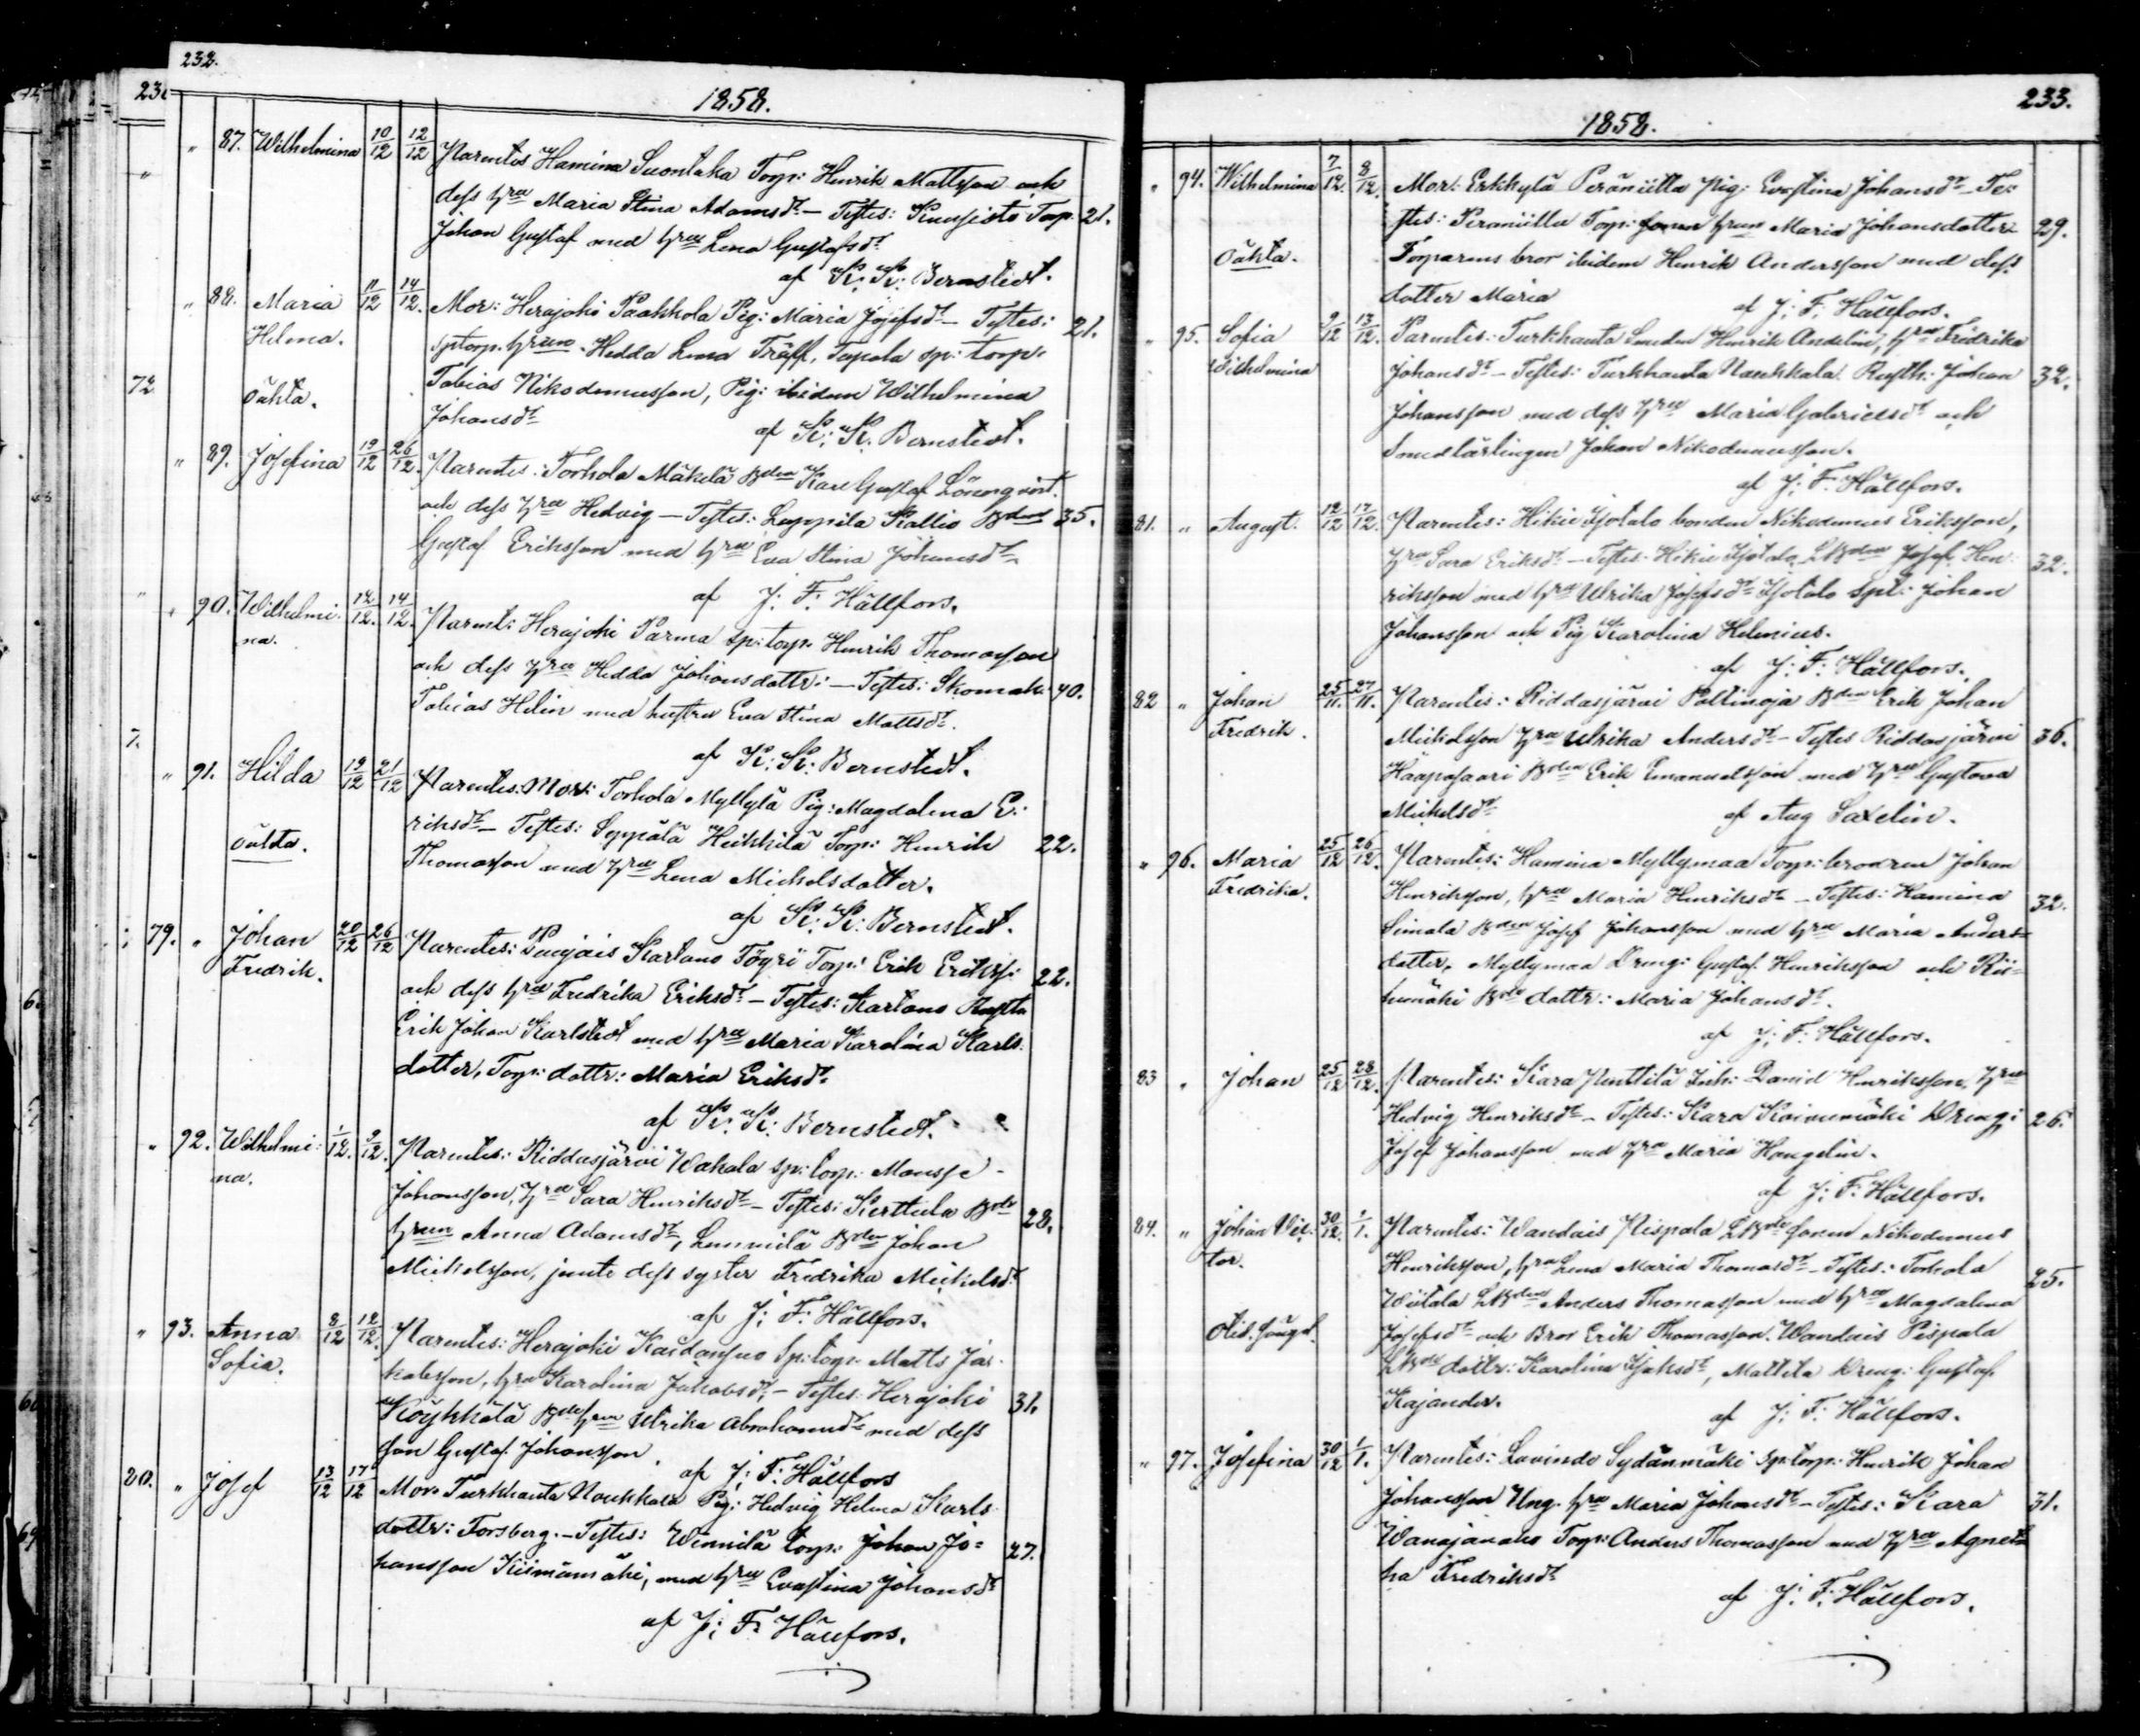 232.
1858.
" 87. Wilhelmina 10/12 12/12 Parentes Hamina Suontaka Torp: Henrik Mattsson och
dess hru Maria Stina Adamsdr – Testes: Torp. 21.
Johan Gustaf med hru Lena Gustafsdr
af K: K: Bernstedt.
" 88. Maria 11/12 14/12. Mor: Herajoki Paakkola Pig: Maria Josefsdr – Testes: 21.
Helena. sptorp. hrun Hedda Lena Träff, Tapola sp: torp.
72 oäkta. Tobias Nikodemusson, Pig: ibidem Wilhelmina
Johansdr
af K: K. Bernstedt.
" 89. Josefina 19/12 26/12. Parentes: Torhola Mäkelä Bden Karl Gustaf Lörenqvist.
och dess hru Hedvig – Testes: Leppilä Kallio Bden 35.
Gustaf Eriksson med hru Eva Stina Johansdr
af J: F: Hällfors.
" 90. Wilhelmi- 12/12. 14/12. Parent: Herajoki Parma sp: torp. Henrik Thomasson
na. och dess hru Hedda Johansdottr: – Testes: Skomak: 40.
Tobias Helin med hustru Eva Stina Mattsdr.
af K: K: Bernstedt.
7.
" 91. Hilda 19/12 21/12 Parentes: Mor: Torhola Myllylä Pig: Magdalena E:
riksdr – Testes: Seppälä Heikkilä Torp: Henrik 22.
oäkta. Thomasson med hru Lena Michelsdotter.
af K: K: Bernstedt.
79. " Johan 20/12 26/12 Parentes: Kartano Töyri Torp: Erik Eriks: 22.
Fredrik. och dess hru Fredrika Eriksdr – Testes: Kartano Rusth
Erik Johan Karlstedt med hru Maria Karolina Karls
dotter, Torp: dottr: Maria Eriksdr.
af K: K: Bernstedt.
" 92. Wilhelmi- 1/12. 9/12. Parentes: Riddasjärvi Wakala sp: torp: Mansse
na. Johansson, hru Sara Henriksdr – Testes: Kerttula Bde 28.
hrun Anna Adamsdr, Lunnilä Bden Johan
Mickelsson, jemte dess syster Fredrika Mickelsdr
af J: F: Hällfors.
" 93. Anna 8/12 12/12. Parentes: Herajoki Kaidansuo Sp: torp. Matts Ja-
Sofia. kobsson, hru Karolina Jakobsdr – Testes: Herajoki 31.
Köykkälä Bde hrun Ulrika Abrahamsdr med dess
son Gustaf Johansson.
af J: F: Hällfors
20. " Josef 13/12 17/12 Mor: Turkhauta Naukkala Pig: Hedvig Helena Karls
dottr: Forsberg. – Testes: Winnilä torp: Johan Jo= 27.
hansson Kiimämäki, med hru Evastina Johansdr
af J: F. Hällfors.
233.
1858.
" 94. Wilhelmina 7/12. 8/12. Mor: Erkkylä Peräniitta Pig: Evastina Johansdr – Te-
stes: Peraniittu Torp: hrun Maria Johansdotter 29.
oäkta. Torparens bror ibidem Henrik Andersson med dess
dotter Maria af J: F: Hällfors.
" 95. Sofia 9/12 13/12. Parentes: Turkhauta Smeden Henrik Andelin, hru Fredrika
Wilhelmina Johansdr – Testes: Turkhauta Naukkala Rusth: Johan 32.
Johansson med dess hru Maria Gabrielsdr och
Smedlärlingen Johan Nikodemusson.
af J: F: Hällfors.
81. " August. 12/12 17/12. Parentes: Hikiä Iso bonden Nikodemus Eriksson,
hru Sara Eriksdr – Testes: Hikiä LBden Josef Hen- 32.
riksson med hru Ulrika Josefsdr Spl: Johan
Johansson och Pig Karolina Helenius.
af J: F: Hällfors.
82 " Johan 25/11. 27/11. Parentes: Riddasjärvi Paltinoja Bden Erik Johan
Fredrik. Michelsson hru Ulrika Andersdr – Testes Riddasjärvi 36.
Haapasaari Bden Erik Emanuelsson med hru Gustava
Michelsdr af Aug Saxelin.
" 96. Maria 25/12 26/12. Parentes: Hamina Myllymaa Torp: brodren Johan
Fredrika. Henriksson, hru Maria Henriksdr – Testes: Hamina 32.
Simala Bden Josef Johansson med hru Maria Anders=
dotter, Myllymaa Dreng: Gustaf Henriksson och Rii-
himäki Bde dottr: Maria Johansdr.
af J: F: Hällfors.
83 " Johan 25/12 28/12. Parentes: Kara Penttilä Inh: David Henriksson, hru
Hedvig Henriksdr – Testes: Kara Koivumäki Dreng: 26.
Josef Johansson med hru Maria Hongelin.
af J: F: Hällfors.
84. " Johan Vic- 30/12. 1/1. Parentes: Wandais Pispala LBde sonen Nikodemus
tor. Henriksson, hru Lena Maria Thomasdr – Testes: Torhola 25.
Wiitala LBden Anders Thomasson med hru Magdalena
Josefsdr och Bror Erik Thomasson. Wandais Pispala
LBde dottr: Karolina Isaksdr, Mattila Dreng: Gustaf
Kajander. af J: F: Hällfors.
" 97. Josefina 30/12 1/1. Parentes: Lavinde Sydänmäki Sp: torp: Henrik Johan
Johansson Ung. hru Maria Johansdr – Testes: Kara 31.
Wanajanaho Torp: Anders Thomasson med hru Agneta
Fredriksdr
af J: F: Hällfors.